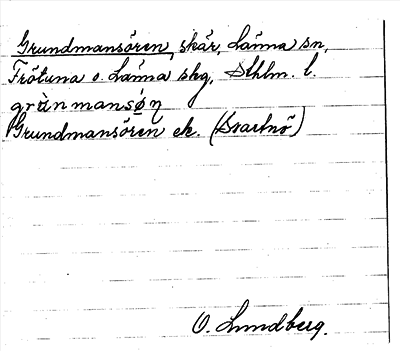 Grundmansören, skär, Länna sn,
Frötuna o. Länna skg, Sthlm. l.
grùnmansǿŋ
Grundmansören ek. (Svartnö)
O. Lundberg.